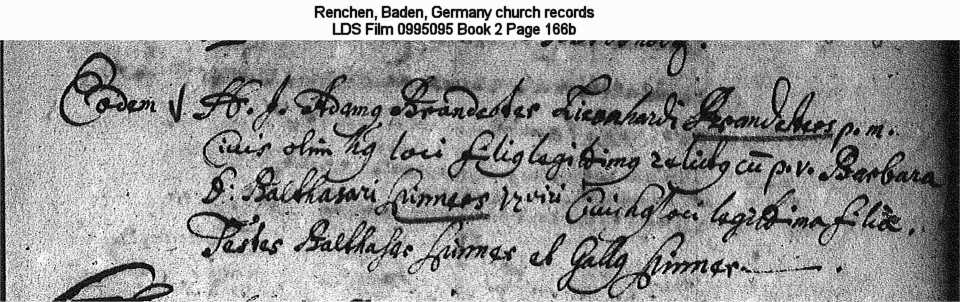 Renchen, Baden, Germany church records
LDS Film 0995095 Book 2 Page 166b
Eodem H. J. Adamg Brandteter Lienhardi Brandeters p. m.
Civis olim hg loci filig legittimg relictg cū p. v. Barbara
D: Balthasari Linners 12viri Civis hg loci legittima filia.
Testes Balthaser Linner et Gallg Linner